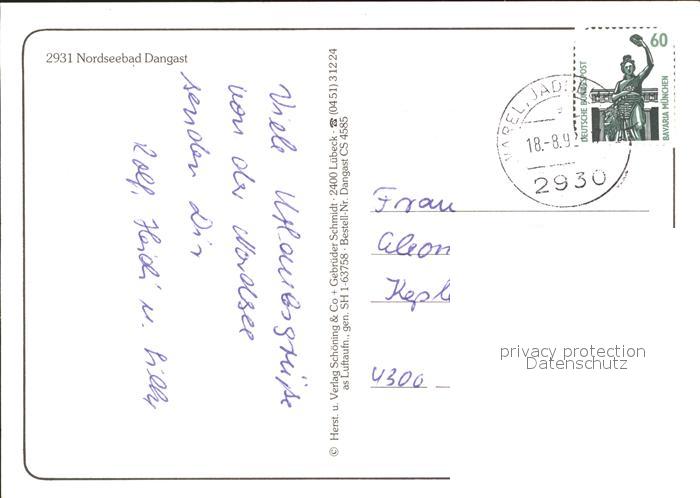 2931 Nordseebad Dangast
Viele Urlaubsgrüße
von der Nordsee
senden Dir
Rolf, Heidi u. Silly
© Herst. u. Verlag Schöning & Co + Gebrüder Schmidt · 2400 Lübeck · ☎ (0451) 31224
as Luftaufn., gen. SH 1-63758 · Bestell-Nr. Dangast CS 4585
60
DEUTSCHE BUNDESPOST
BAVARIA MÜNCHEN
VAREL, JAD
18.-8.9
2930
Frau
Kepl
4300
privacy protection
Datenschutz